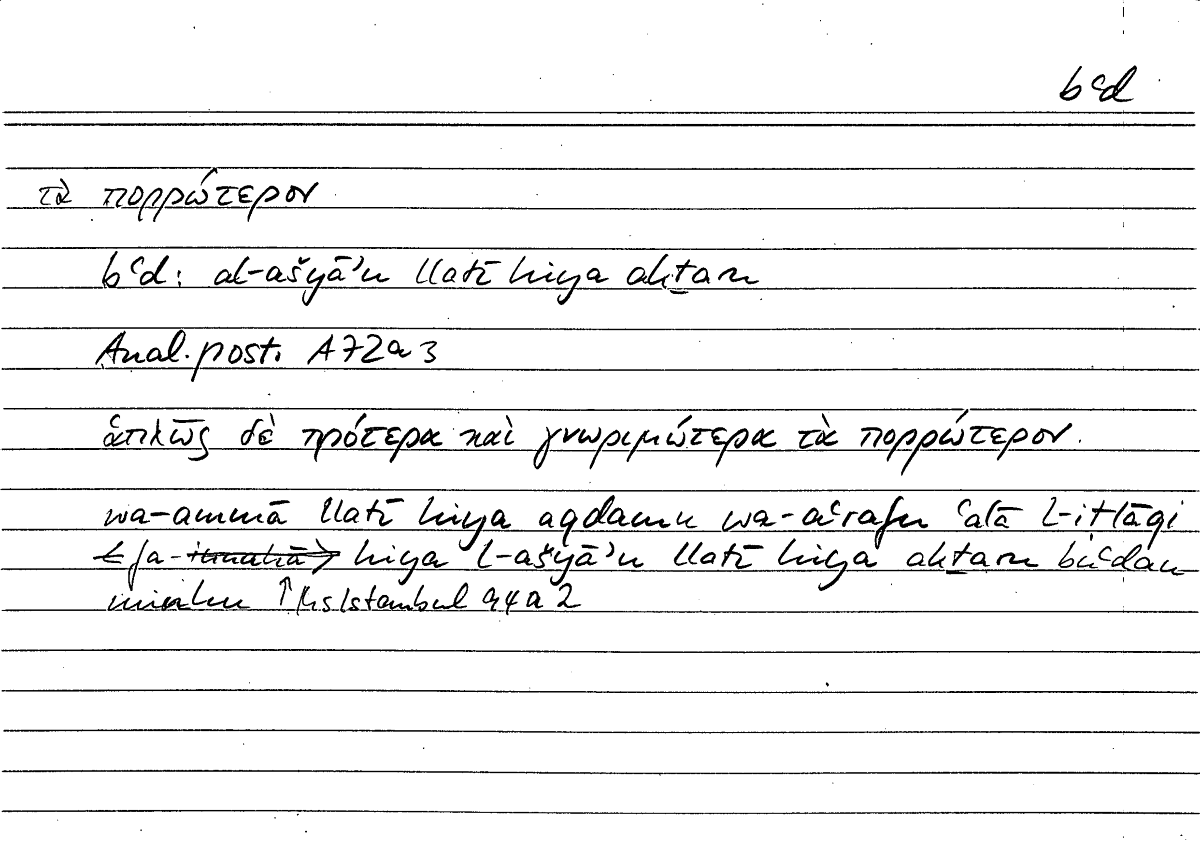 bʿd
τὰ πορρώτερον
bʿd: al-ašyāʾu llatī hiya akṯaru
Anal. post. A 72a3
ἁπλῶς δὲ πρότερα καὶ γνωριμώτερα τὰ πορρώτερον.
wa-ammā llatī hiya aqdamu wa-aʿrafu ʿalā l-iṭlāqi
fa- hiya l-ašyāʾu llatī hiya akṯaru buʿdan
minhu ↑ Hs Istambul 94a2